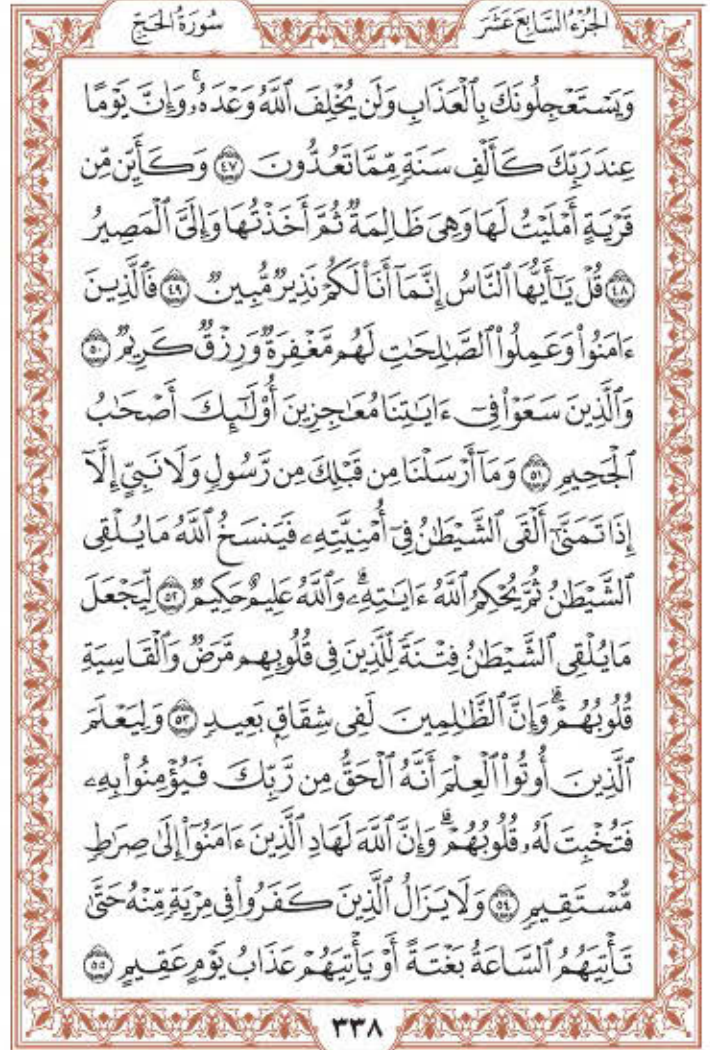 الجُزْءُ السَّابِعَ عَشَرَ
سُورَةُ الحَجِّ
وَيَسْتَعْجِلُونَكَ بِٱلْعَذَابِ وَلَن يُخْلِفَ ٱللَّهُ وَعْدَهُۥۚ وَإِنَّ يَوْمًا
عِندَ رَبِّكَ كَأَلْفِ سَنَةٖ مِّمَّا تَعُدُّونَ ٤٧ وَكَأَيِّن مِّن
قَرْيَةٍ أَمْلَيْتُ لَهَا وَهِيَ ظَالِمَةٞ ثُمَّ أَخَذْتُهَا وَإِلَيَّ ٱلْمَصِيرُ
٤٨ قُلْ يَٰٓأَيُّهَا ٱلنَّاسُ إِنَّمَآ أَنَا۠ لَكُمْ نَذِيرٞ مُّبِينٞ ٤٩ فَٱلَّذِينَ
ءَامَنُوا۟ وَعَمِلُوا۟ ٱلصَّٰلِحَٰتِ لَهُم مَّغْفِرَةٞ وَرِزْقٞ كَرِيمٞ ٥٠
وَٱلَّذِينَ سَعَوْا۟ فِيٓ ءَايَٰتِنَا مُعَٰجِزِينَ أُو۟لَٰٓئِكَ أَصْحَٰبُ
ٱلْجَحِيمِ ٥١ وَمَآ أَرْسَلْنَا مِن قَبْلِكَ مِن رَّسُولٖ وَلَا نَبِيٍّ إِلَّآ
إِذَا تَمَنَّىٰٓ أَلْقَى ٱلشَّيْطَٰنُ فِيٓ أُمْنِيَّتِهِۦ فَيَنسَخُ ٱللَّهُ مَا يُلْقِي
ٱلشَّيْطَٰنُ ثُمَّ يُحْكِمُ ٱللَّهُ ءَايَٰتِهِۦۗ وَٱللَّهُ عَلِيمٌ حَكِيمٞ ٥٢ لِّيَجْعَلَ
مَا يُلْقِي ٱلشَّيْطَٰنُ فِتْنَةٗ لِّلَّذِينَ فِي قُلُوبِهِم مَّرَضٞ وَٱلْقَاسِيَةِ
قُلُوبُهُمْۗ وَإِنَّ ٱلظَّٰلِمِينَ لَفِي شِقَاقِۭ بَعِيدٖ ٥٣ وَلِيَعْلَمَ
ٱلَّذِينَ أُوتُوا۟ ٱلْعِلْمَ أَنَّهُ ٱلْحَقُّ مِن رَّبِّكَ فَيُؤْمِنُوا۟ بِهِۦ
فَتُخْبِتَ لَهُۥ قُلُوبُهُمْۗ وَإِنَّ ٱللَّهَ لَهَادِ ٱلَّذِينَ ءَامَنُوٓا۟ إِلَىٰ صِرَٰطٖ
مُّسْتَقِيمٖ ٥٤ وَلَا يَزَالُ ٱلَّذِينَ كَفَرُوا۟ فِي مِرْيَةٖ مِّنْهُ حَتَّىٰ
تَأْتِيَهُمُ ٱلسَّاعَةُ بَغْتَةً أَوْ يَأْتِيَهُمْ عَذَابُ يَوْمٍ عَقِيمٍ ٥٥
٣٣٨